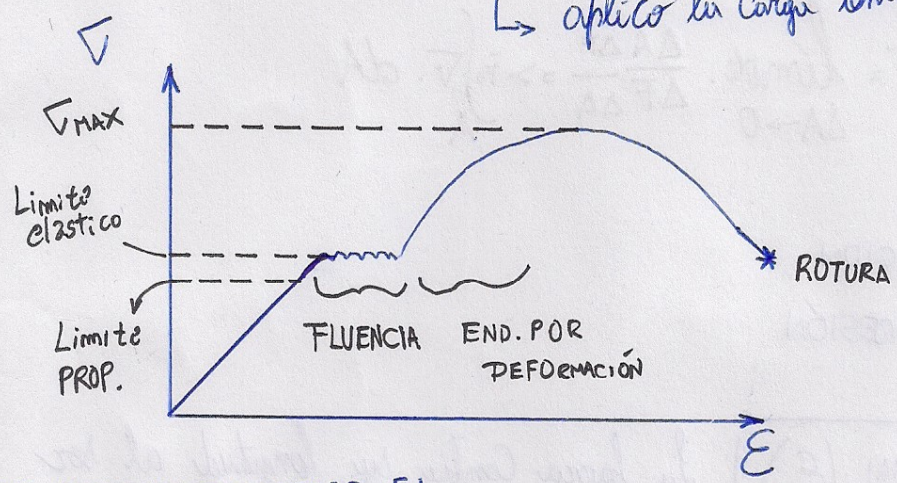 ↳ aplico la carga
σ
σ MAX
Limite
elástico
Limite
PROP.
FLUENCIA
END. POR
DEFORMACIÓN
ROTURA
ε